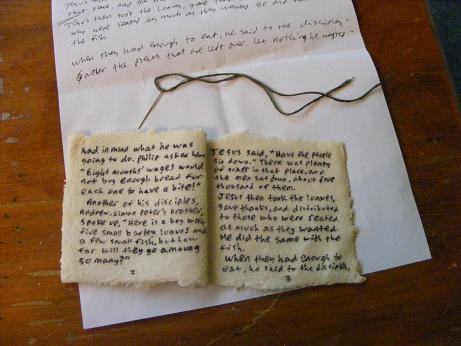 Jesus
place, and the
Jesus then took the loaves, gave
who were seated as much as they wanted. He did the
the fish.
When they had enough to eat, he said to the disciples,
Gather the pieces that are left over. Let nothing be wasted.
had in mind what he was
going to do. Philip asked him
"Eight months' wages would
not buy enough bread for
each one to have a bite!"
Another of his disciples,
Andrew, Simon Peter's brother,
spoke up, "Here is a boy with
five small barley loaves and
a few small fish, but how
far will they go amoung
so many?"
2
Jesus said, "Have the people
sit down." There was plenty
of grass in that place, and
the men sat down, about five
thousand of them.
Jesus then took the loaves,
gave thanks, and distributed
to those who were seated
as much as they wanted.
He did the same with the
fish.
When they had enough to
eat, he said to the disciples,
3